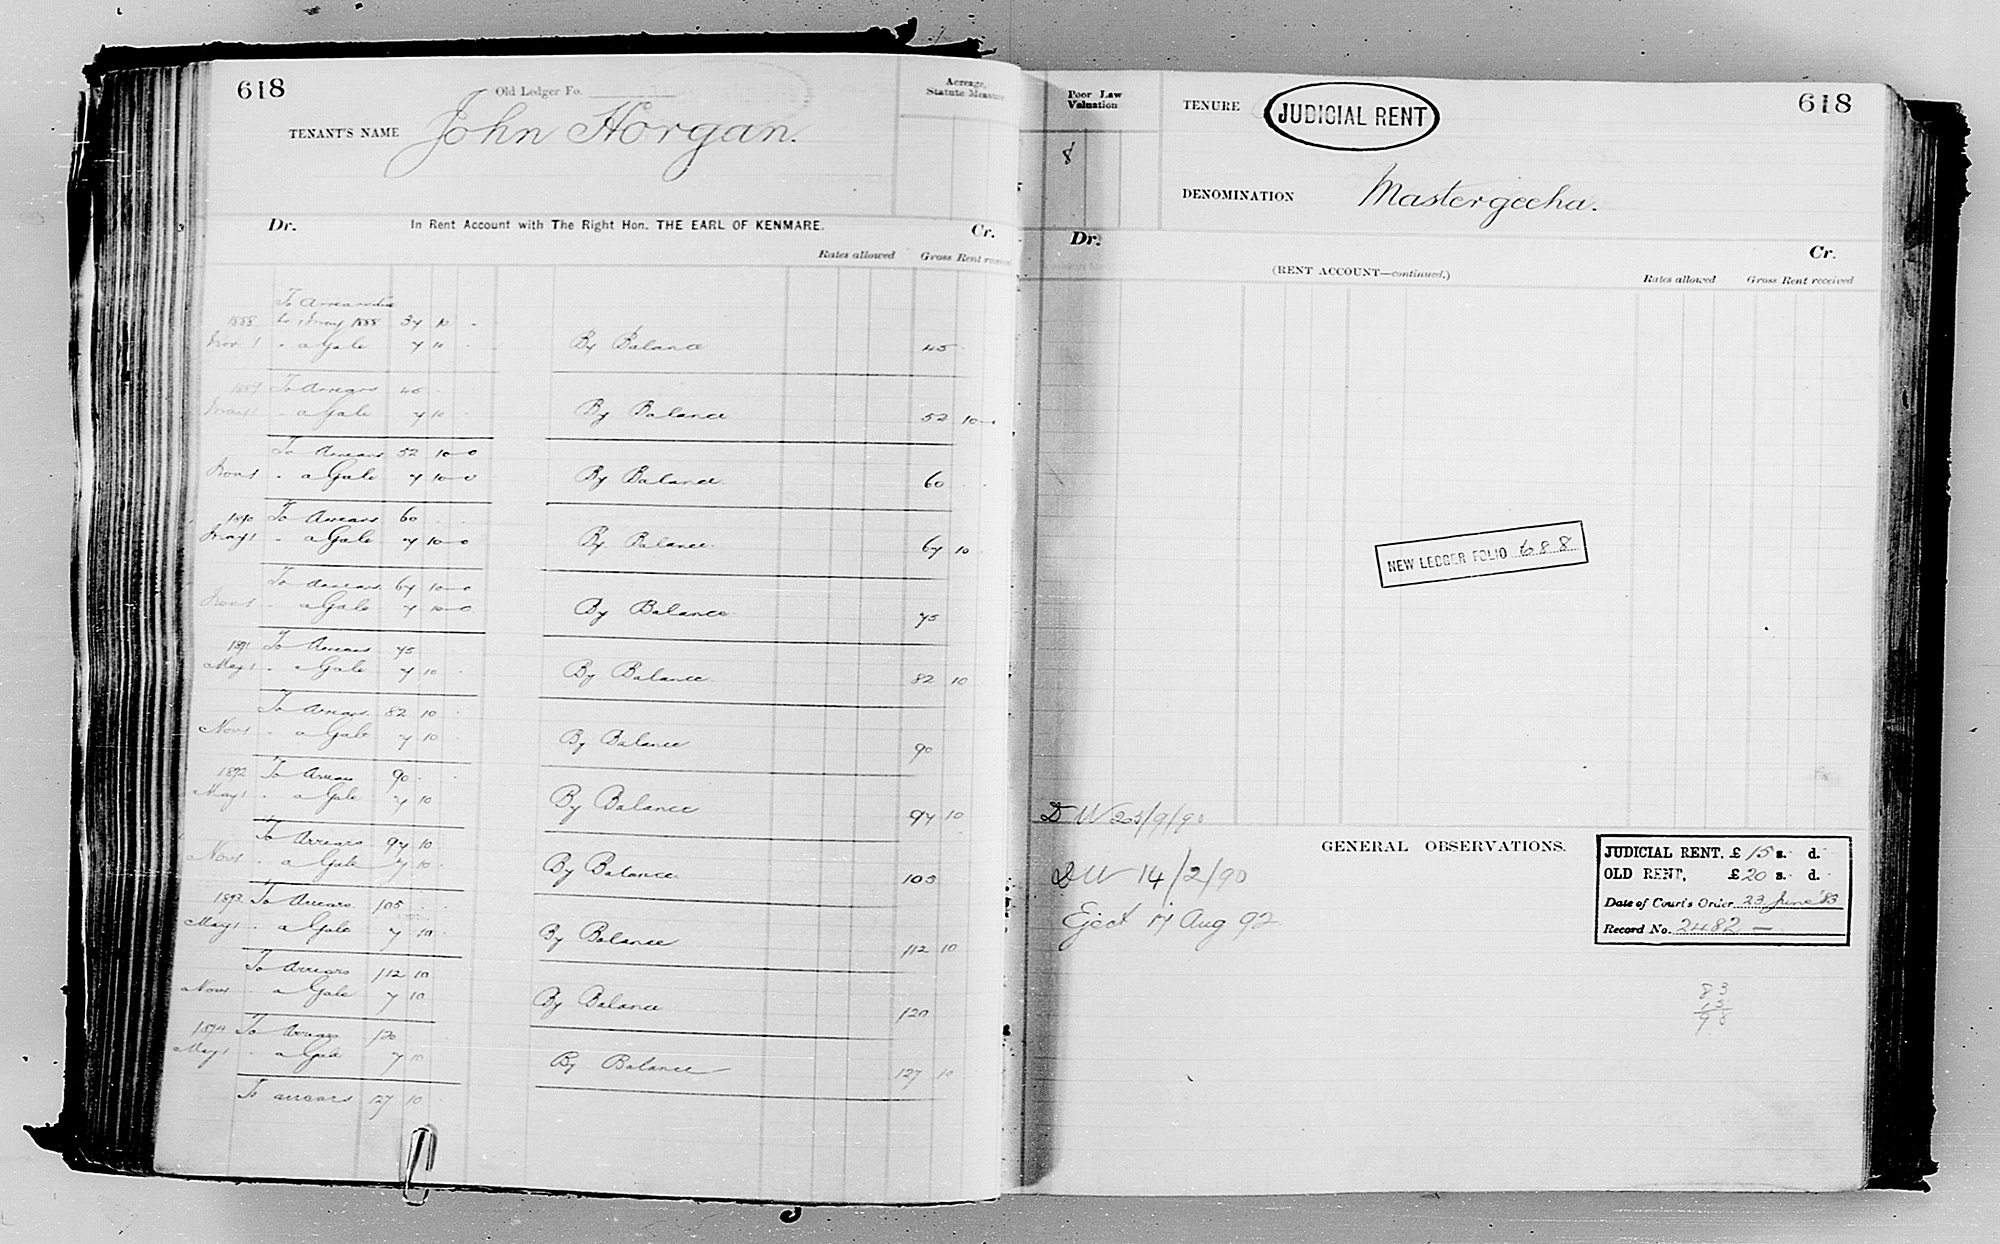 618
Old Ledger Fo.
TENANT'S NAME John Horgan.
Acreage, Statute Measure
Dr. In Rent Account with The Right Hon. THE EARL OF KENMARE. Cr.
Rates allowed Gross Rent received
To Arrears due
1888 to 1 May 1888 37 10 -
Nov 1 " a Gale 7 10 - By Balance 45 -
1889 To Arrears 45
May 1 " a Gale 7 10 By Balance 52 10 -
To Arrears 52 10 0
Nov 1 " a Gale 7 10 0 By Balance 60 - -
1890 To Arrears 60 - -
May 1 " a Gale 7 10 0 By Balance 67 10
To Arrears 67 10 0
Nov 1 " a Gale 7 10 0 By Balance 75
1891 To Arrears 75
May 1 " a Gale 7 10 - By Balance 82 10
To Arrears 82 10 -
Nov 1 " a Gale 7 10 - By Balance 90
1892 To Arrears 90 - -
May 1 " a Gale 7 10 By Balance 97 10
To Arrears 97 10
Nov 1 " a Gale 7 10 - By Balance 105
1893 To Arrears 105 - -
May 1 " a Gale 7 10 - By Balance 112 10
To Arrears 112 10
Nov 1 " a Gale 7 10 By Balance 120
1894 To Arrears 120
May 1 " a Gale 7 10 By Balance 127 10
To arrears 127 10
Poor Law Valuation
8
TENURE JUDICIAL RENT
618
DENOMINATION Mastergeeha.
Dr. Cr.
(RENT ACCOUNT—continued.)
Rates allowed Gross Rent received
NEW LEDGER FOLIO 688
DW 25/9/90
GENERAL OBSERVATIONS.
DW 14/2/90
Eject 17 Aug 92
JUDICIAL RENT. £ 15 s. d.
OLD RENT, £ 20 s. d.
Date of Court's Order 23 June '83
Record No. 2482 —
83
15
98